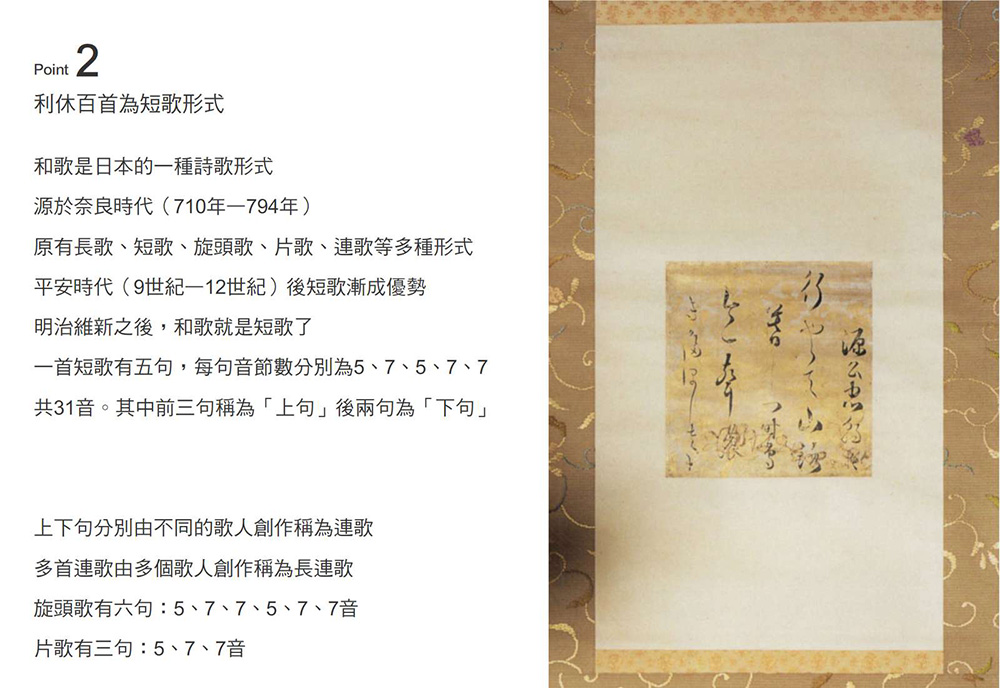 Point 2
利休百首為短歌形式
和歌是日本的一種詩歌形式
源於奈良時代（710年—794年）
原有長歌、短歌、旋頭歌、片歌、連歌等多種形式
平安時代（9世紀—12世紀）後短歌漸成優勢
明治維新之後，和歌就是短歌了
一首短歌有五句，每句音節數分別為5、7、5、7、7
共31音。其中前三句稱為「上句」後兩句為「下句」
上下句分別由不同的歌人創作稱為連歌
多首連歌由多個歌人創作稱為長連歌
旋頭歌有六句：5、7、7、5、7、7音
片歌有三句：5、7、7音
源公忠朝臣
行やらて山路
暮しつ時鳥
今一聲濃